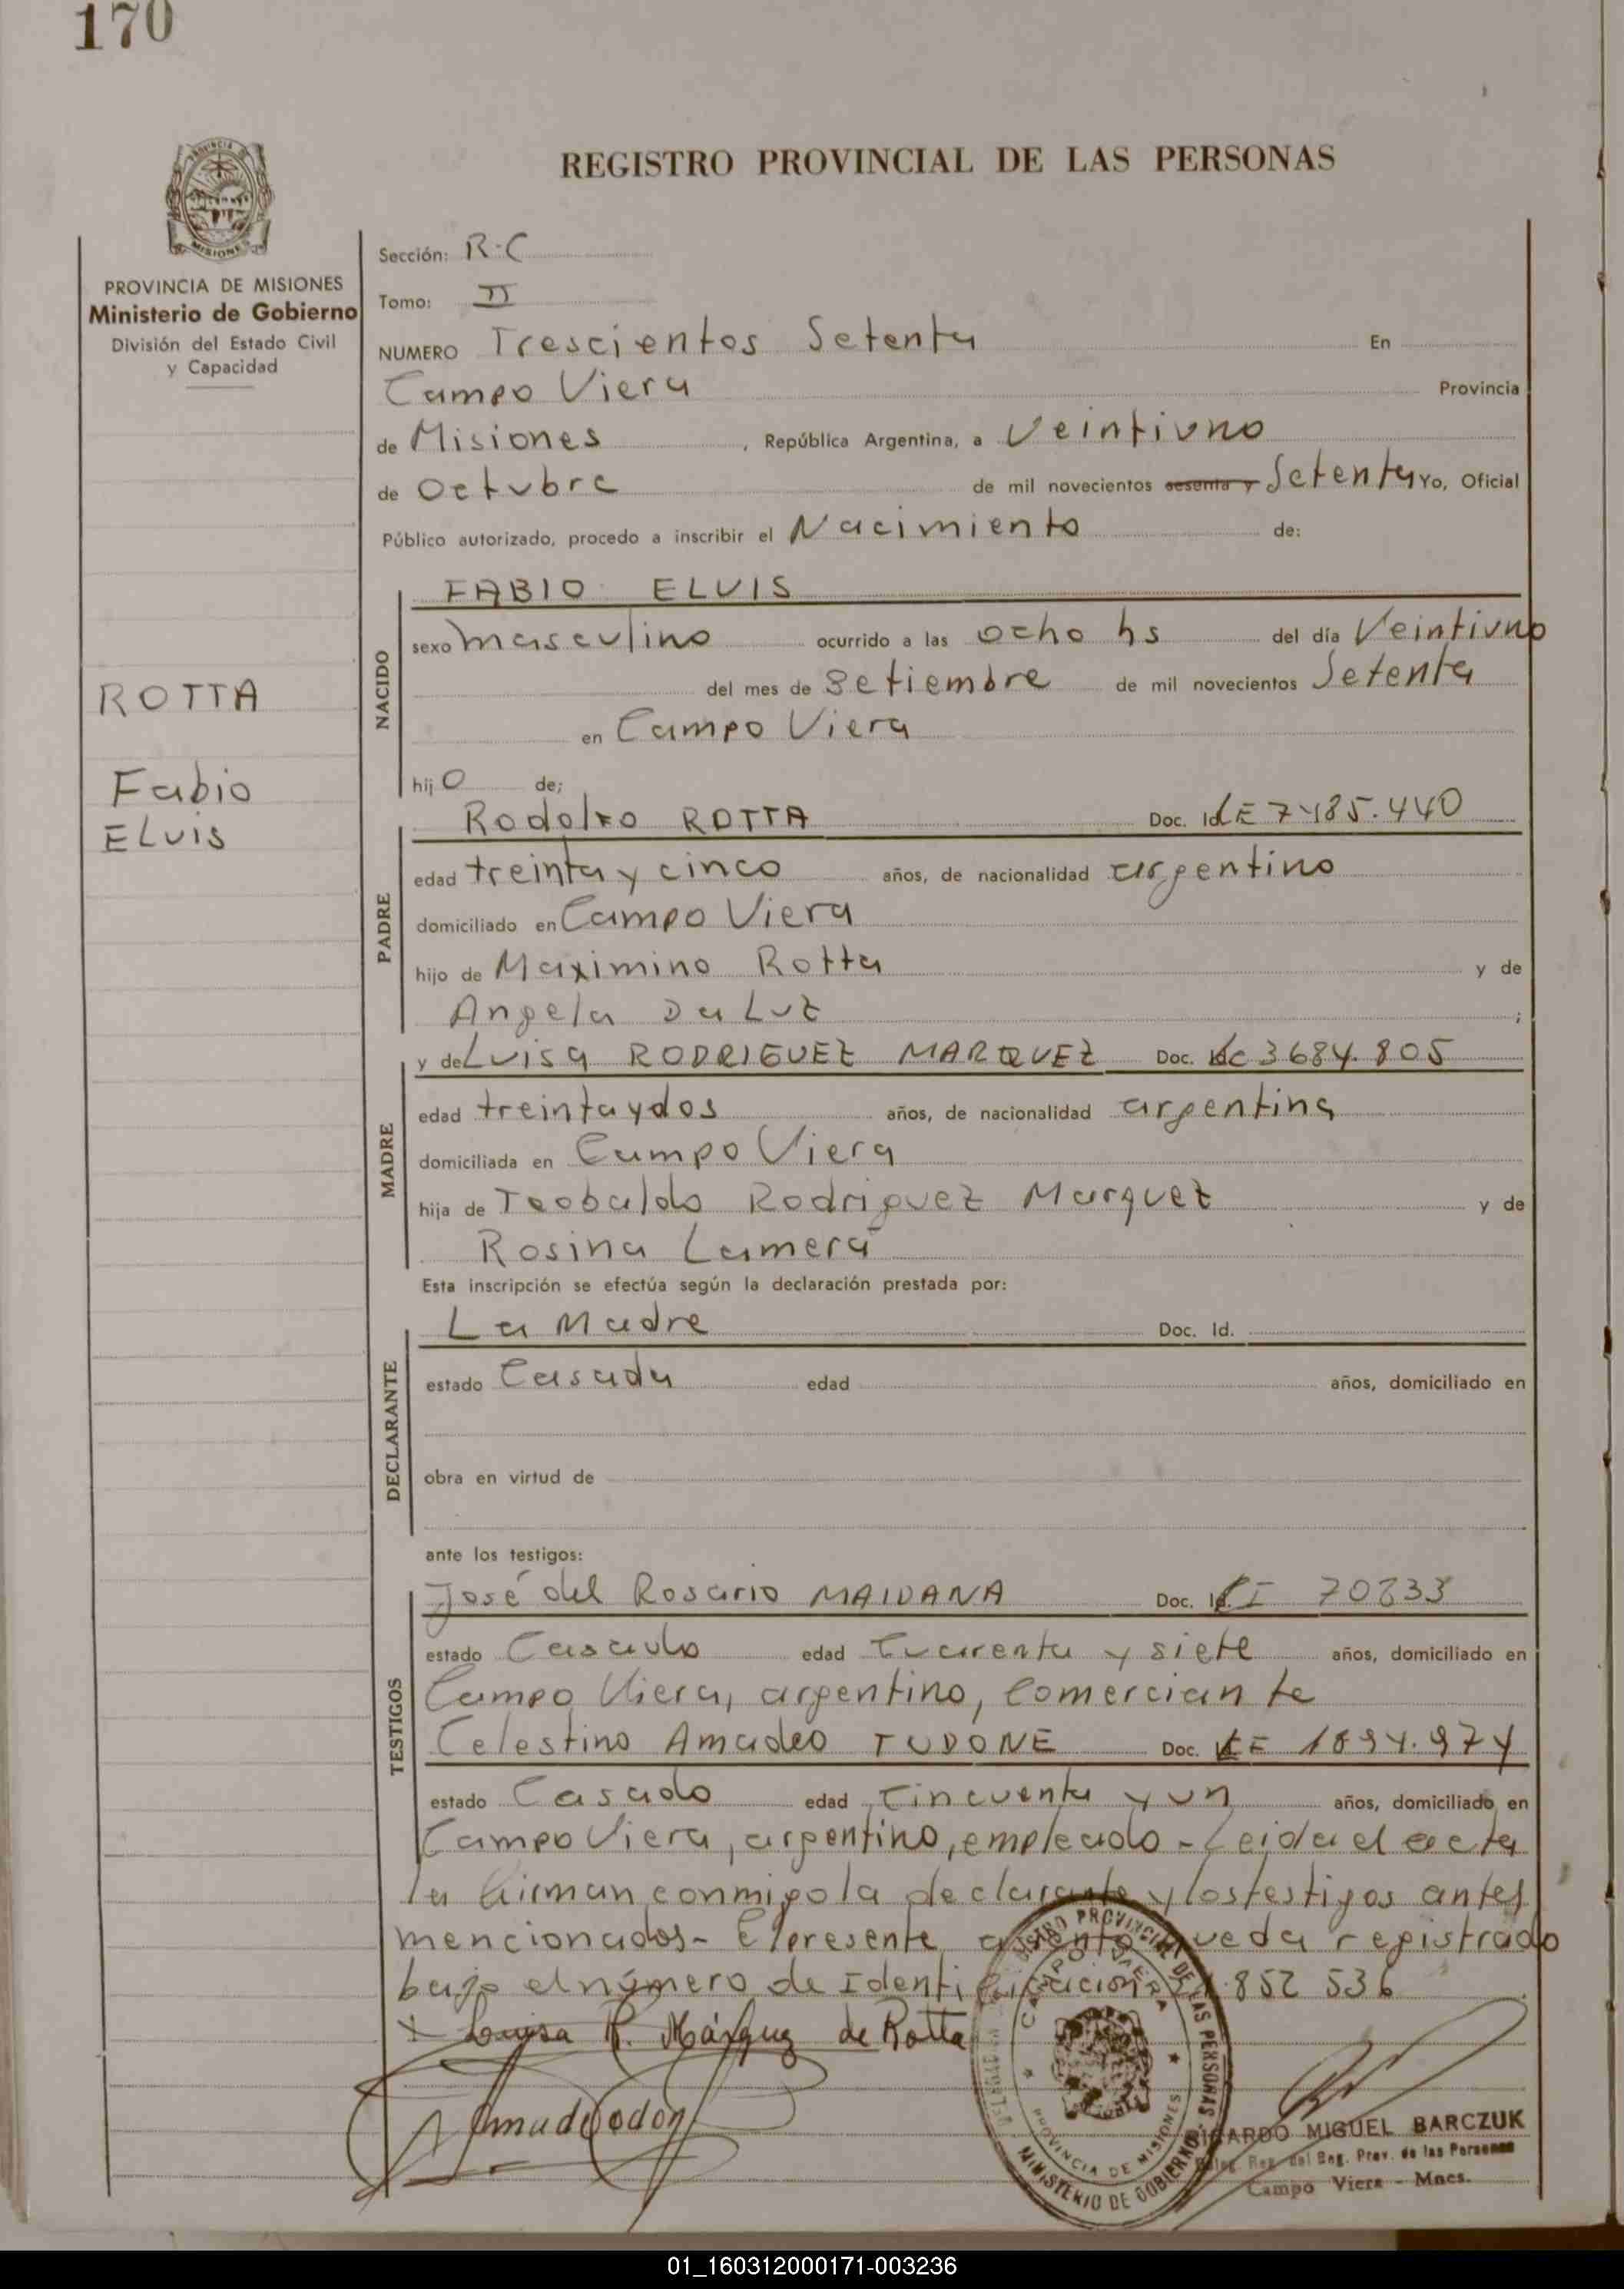 170
REGISTRO PROVINCIAL DE LAS PERSONAS
PROVINCIA DE MISIONES
Ministerio de Gobierno
División del Estado Civil
y Capacidad
ROTTA
Fabio
ELVIS
Sección: R.C
Tomo: II
NUMERO Trescientos Setenta En
Campo Viera Provincia
de Misiones, República Argentina, a Veintiuno
de Octubre de mil novecientos sesenta y Setenta Yo, Oficial
Público autorizado, procedo a inscribir el Nacimiento de:
NACIDO
FABIO ELVIS
sexo masculino ocurrido a las ocho hs del día Veintiuno
del mes de Setiembre de mil novecientos Setenta
en Campo Viera
hijo de;
PADRE
Rodolfo ROTTA Doc. Id LE 7485.440
edad treinta y cinco años, de nacionalidad argentino
domiciliado en Campo Viera
hijo de Maximino Rotta y de
Angela Da Luz ;
MADRE
y de Luisa RODRIGUEZ MARQUEZ Doc. LC 3684.805
edad treinta y dos años, de nacionalidad argentina
domiciliada en Campo Viera
hija de Teobaldo Rodriguez Marquez y de
Rosina Lamera
Esta inscripción se efectúa según la declaración prestada por:
DECLARANTE
La Madre Doc. Id.
estado Casada edad años, domiciliado en
obra en virtud de
ante los testigos:
TESTIGOS
José del Rosario MAIDANA Doc. Id. CI 70833
estado Casado edad Cuarenta y siete años, domiciliado en
Campo Viera, argentino, Comerciante
Celestino Amadeo TUDONE Doc. LE 1894.974
estado Casado edad Cincuenta y un años, domiciliado en
Campo Viera, argentino, empleado - Leida el acta
la firman conmigo la declarante y los testigos antes
mencionados - El presente asiento queda registrado
bajo el número de Identificación 21.852 536
Luisa R. Márquez de Rotta
REGISTRO PROVINCIAL DE LAS PERSONAS
CAMPO VIERA
PROVINCIA DE MISIONES
MINISTERIO DE GOBIERNO
RICARDO MIGUEL BARCZUK
Deleg. Reg. del Reg. Prov. de las Personas
Campo Viera - Mnes.
01_160312000171-003236